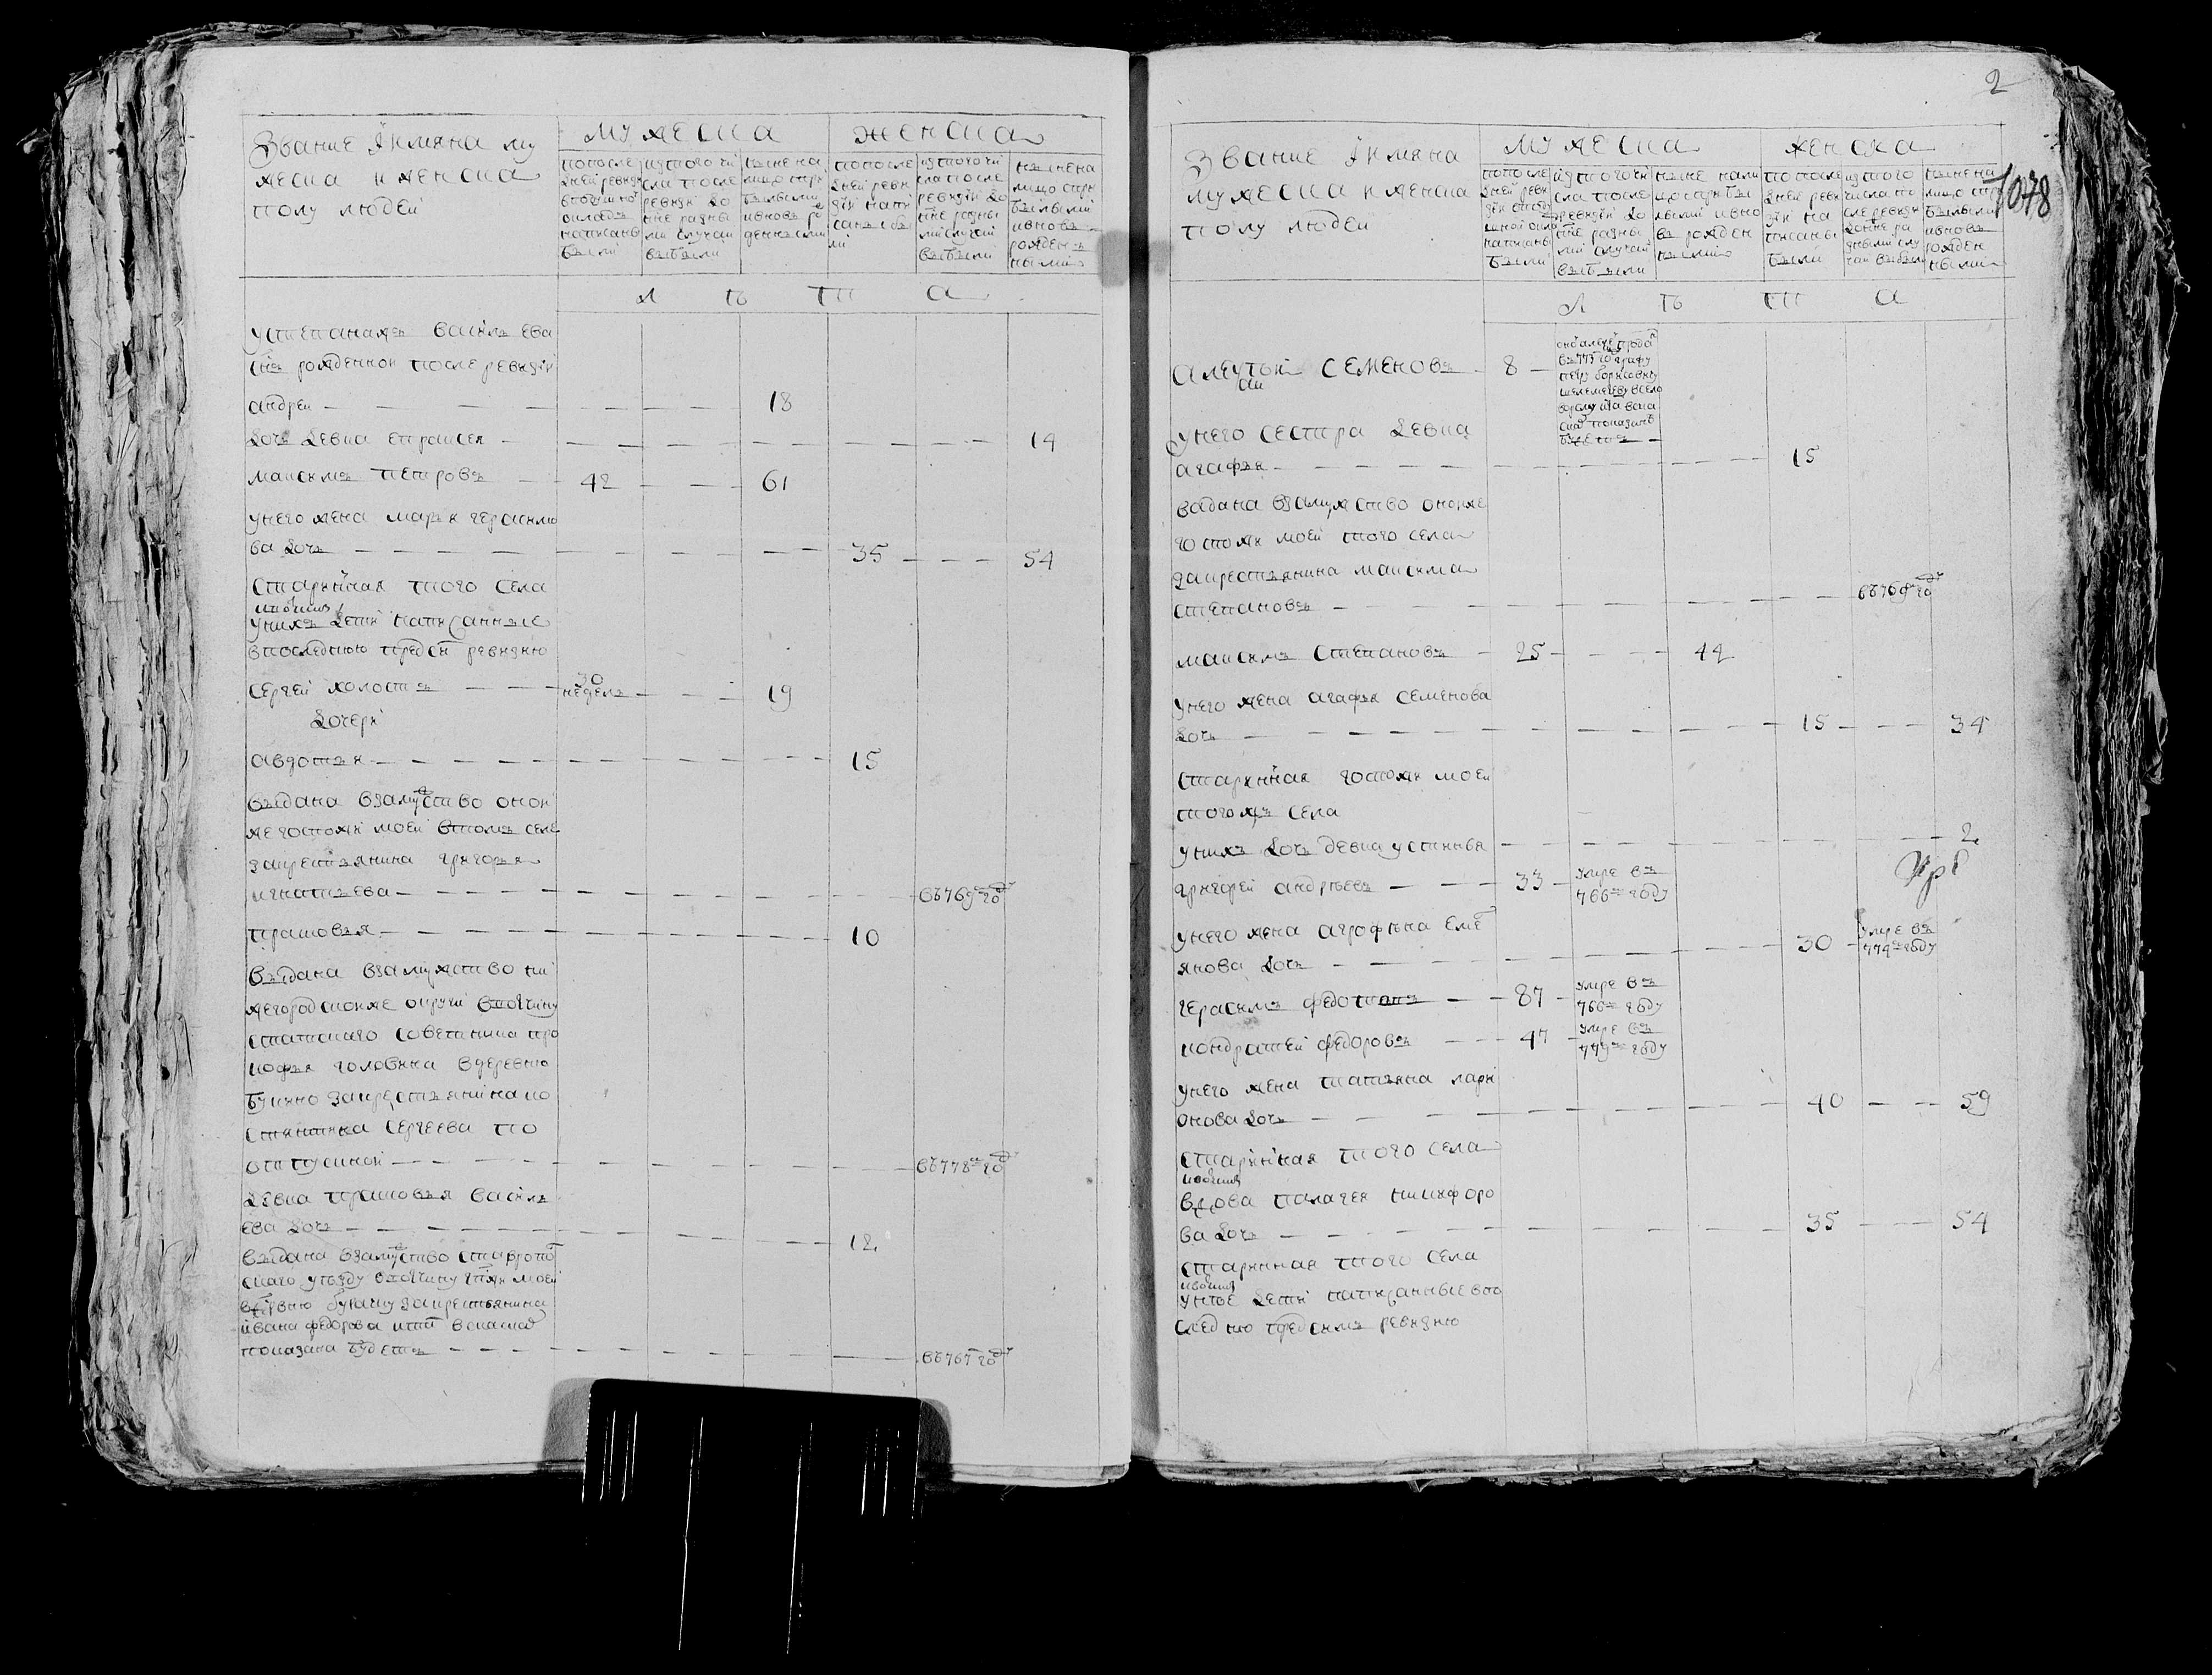 Звание и имяна му
жеска и женска
полу людей
мужеска
женска
по после
дней ревизи
написаны
были
ис того чи
сла после
ревизи до
не разны
ми случаи
выбыли
ныне на
лицо
были
и вновь ро
жденными
по после
дней реви
зи напи
саны бы
ли
ис того чи
сла после
ревизи до
не разны
ми случаи
выбыли
ныне на
лицо
и вновь
рожден
ными
л ѣ т а
у степана жъ василь ева
снъ рожденной после ревизи
андреи 18
дочь девка епраксея 14
максимъ петровъ 42 61
у него жена марья герасимо
ва дочь 35 54
старинная того села
у нихъ дети написанные
в последнюю пред сей ревизию
сергей холостъ 30 недель 19
дочери
авдотья 15
выдана взамужство оной
же госпожи моей в томъ селе
за крестьянина григорья
игнатьева въ 769м году
прасковья 10
выдана взамужство ни
жегородской же округи в вотчину
статскаго советника про
кофья головина в деревню
за крестьянина ко
стянтина сергеева по
отпускной въ 778м году
девка прасковья василь
ева дочь 12
выдана взамужство ставропол
скаго уезду в вотчину гпжи моей
в дрвню за крестьянина
ивана федорова и тамъ в скаске
показана будетъ въ 767 году
2
1078
Звание и имяна
мужеска и женска
полу людей
мужеска
женска
по после
дней реви
написаны
были
ис того чи
сла после
ревизи до
не разны
ми случаи
выбыли
ныне нали
цо
и вно
вь рожден
ными
по после
дней реви
зи на
писаны
были
ис того
числа по
сле ревизи
до не ра
зными слу
чаи выбыли
ныне на
лицо
и вновь
рожден
ными
л ѣ т а
алексей семеновъ 8
графу
петру борисовичу
шереметеву в село
ворсму и та в ска
ске показанъ
будетъ
у него сестра девка
агафья 15
выдана взамужство оной же
госпожи моей того села
за крестьянина максима
степанова въ 769м году
максимъ степановъ 25 44
у него жена агафья семенова
дочь 15 34
старинная госпожи моей
того жъ села
у нихъ дочь девка устинья 2
григорей андреевъ 33 умре въ 766м году
у него жена агрофена емел
янова дочь 30 умре въ 774м году
герасимъ федотовъ 87 умре въ 766м году
кондратей федоровъ 47 умре въ 779м году
у него жена татьяна лари
онова дочь 40 59
старинная того села
вдова палагея никифоро
ва дочь 35 54
старинная того села
у нее дети написанные в по
следнюю пред симъ ревизию